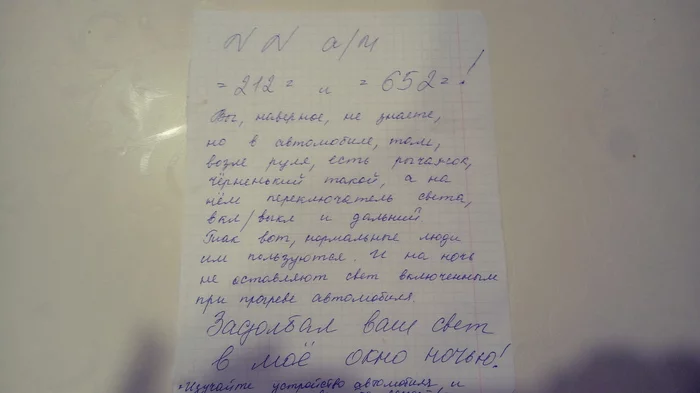 N N а/м
=212= и =652=!
Вы, наверное, не знаете,
но в автомобиле, там,
возле руля, есть рычажок,
чёрненький такой, а на
нём переключатель света,
вкл/выкл и дальний.
Так вот, нормальные люди
им пользуются. И на ночь
не оставляют свет включенным
при прогреве автомобиля.
Задолбал ваш свет
в моё окно ночью!
=Изучайте устройство автомобиля, и